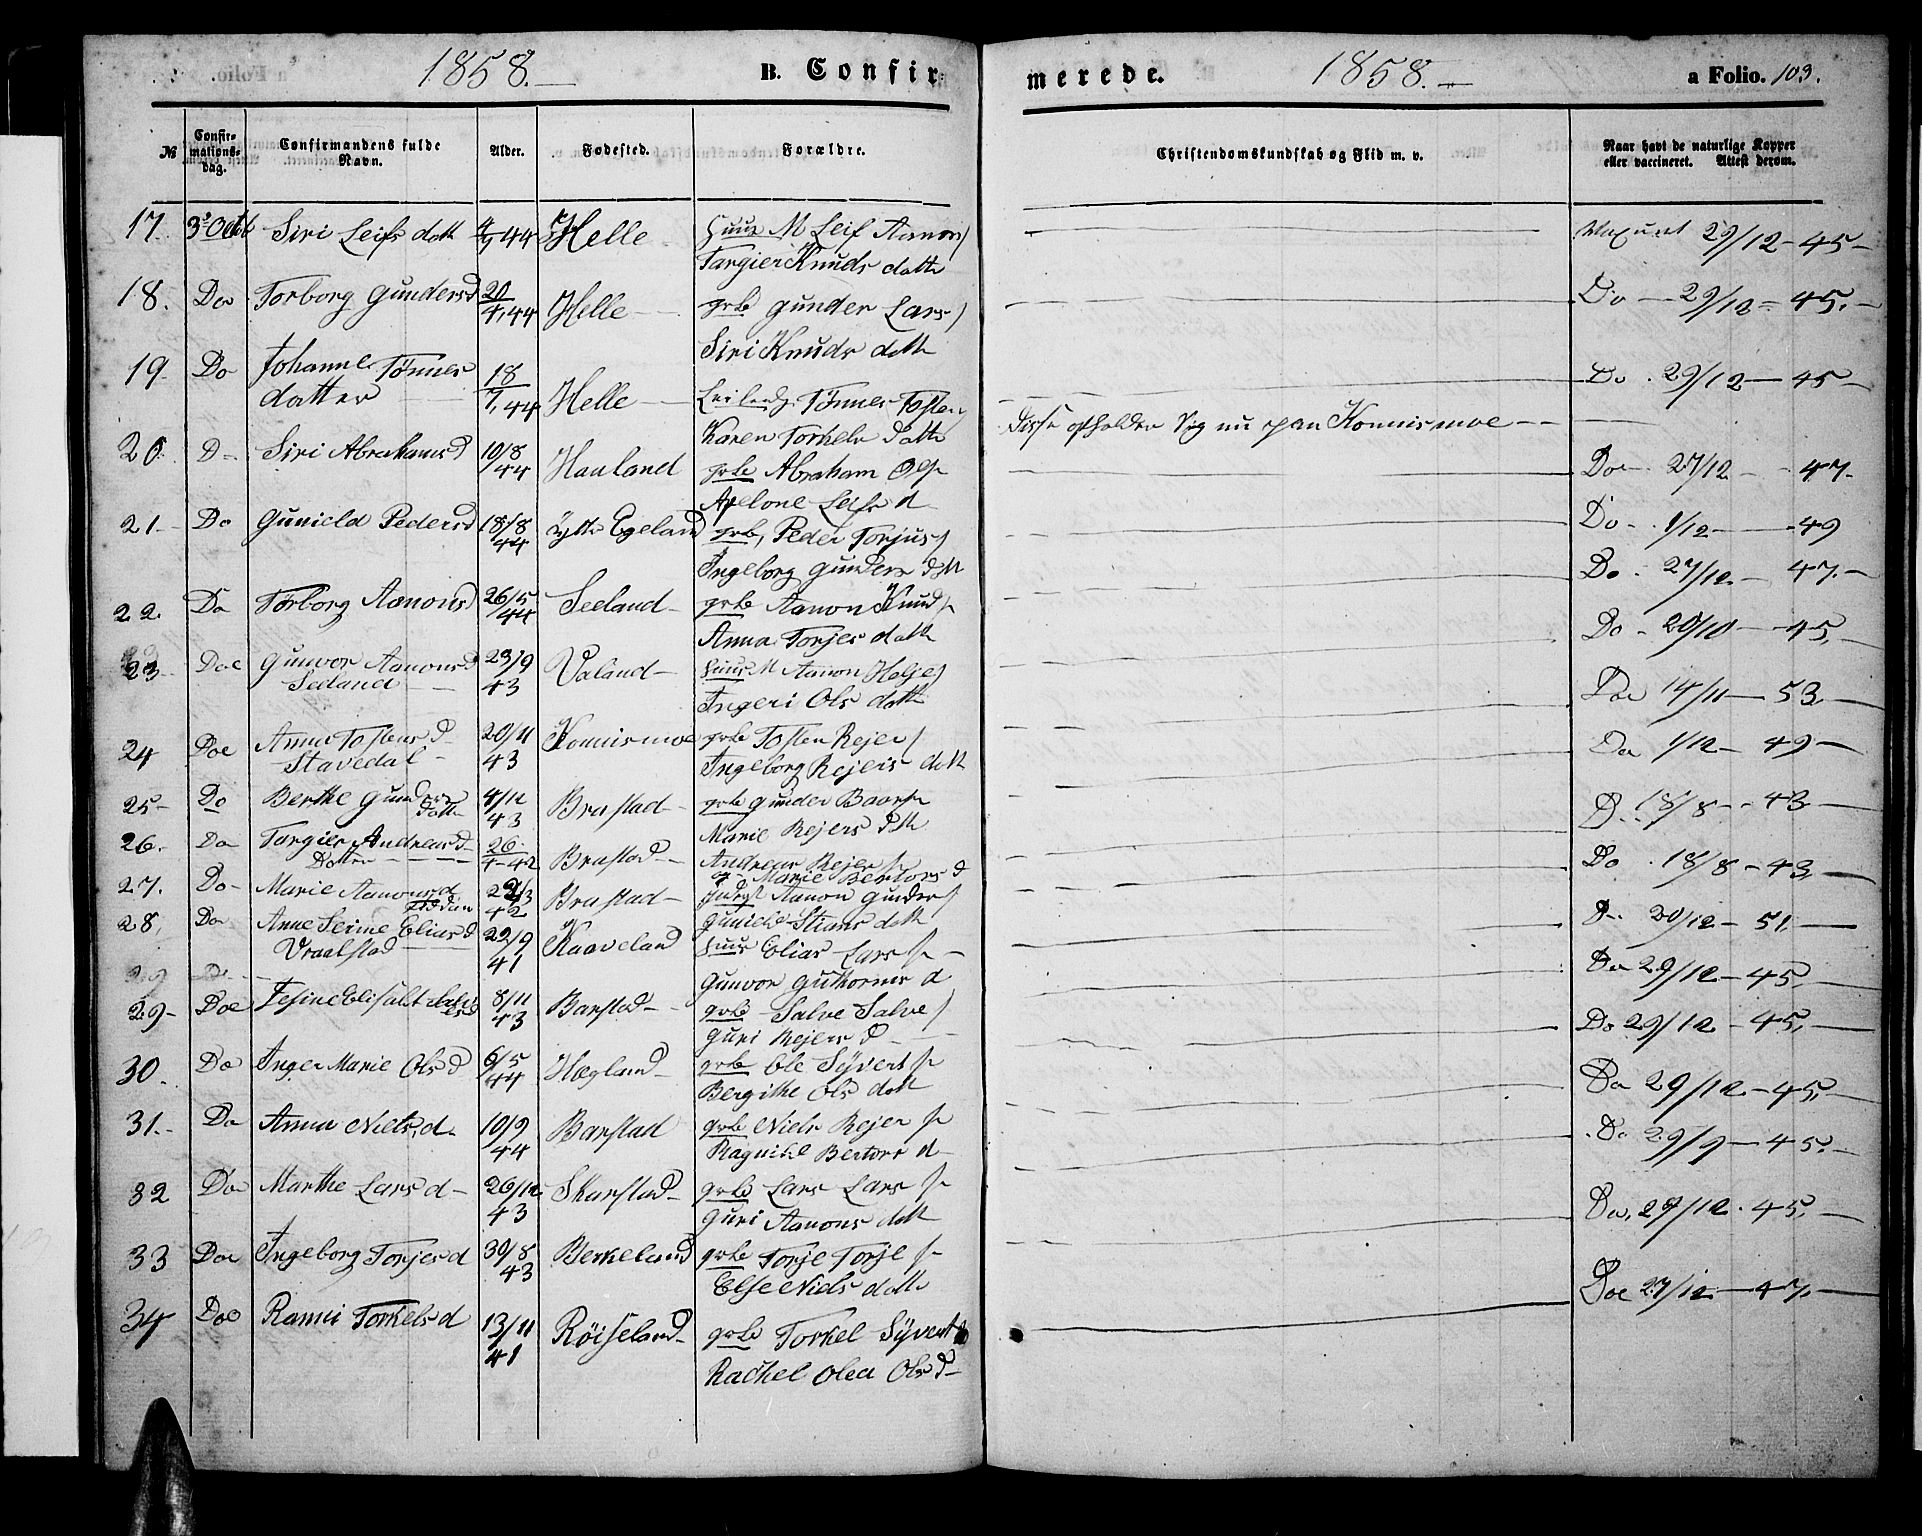 1858.
B. Confir
merede.
1858.
a Folio. 103.
№
Confir-
mations-
dag.
Confirmandens fulde
Navn.
Alder.
Fødested.
Forældre.
Christendomskundskab og Flid m. v.
Naar havt de naturlige Kopper
eller vaccineret. Attest derom.
17. 3 Octb Siri Leifs datt 44 Helle Huus M Leif Aanon
29/12 - 45
Targier Knuds datte
18. Do Torborg Gunders d 20/4, 44 Helle grbr Gunder Lars
Do 29/12 - 45.
Siri Knuds datt
19. Do Johanne Tønnes
datter 18/7, 44 Helle Leilend Tønnes Tosten
Do. 29/12 - 45
Karen Torkels datte
Disse opholder sig nu paa Konnismoe
20. D Siri Abrahams d 10/8 44 Hauland grbr Abraham Ols
Do 27/12 - 47.
Apelone Leifs d
21. Do Gunild Peders d 18/8 44 Ytte Egeland grb, Peder Torjus
Do 1/12 - 49
Ingeborg Gunders datt
Do 27/12 - 47.
22. Do Torborg Aanons d 26/5 44 Seeland grbr Aanon Knuds
Anna Torjes datte
Do 20/10 - 45.
23. Doe Gunvor Aanons d
Seeland 23/9 43 Valand Huus M Aanon Helje
Ingeri Ols datte
Doe 14/11 - 53
24 Doe Anna Tostens d
Stavedal 20/11 43 Konnismoe grbr Tosten Rejer
Ingeborg Rejers datt
Do 1/12 - 49
25 Do Berthe Gunders
datte 4/12 43 Brastad grbr Gunder Baars
Marie Rejers datt
D. 18/8 - 43
26. Do Targier Andreas d
Datter 26/4 - 42 Brastad Andreas Rejers
og Marie Bertors d
Do 18/8 - 43
27. Do Marie Aanons d
42 Brastad Aanon Gunders
Gunild Stians datt
D. 30/12 - 51.
28. Do Anne Serine Elias d
Vraalstad 22/9 41 Kaaveland Huus Elias Lars
Gunvor Guthorms d
Do 29/12 - 45.
29 Doe Tesine Elisabt Salve
8/11 43 Barstad grbr Salve Salve
Guri Rejers d
Do 29/12 - 45.
30. Do Inger Marie Ols d 6/5 44 Hægland grbr Ole Syvert
Bergithe Ols datt
Do 29/12 - 45.
31. Do Anna Niels. d. 10/9 44 Barstad grbr Niels Rejer
Ragnild Bertors d
Do 29/9 - 45.
32 Do Marthe Lars d 26/12 43 Skarstad grbr Lars Lars
Guri Aanons datt
Do. 29/12 - 45.
33 Doe Ingeborg Torjes d 30/8 43 Berkeland grbr Torje Torje
Else Niels datte
Doe 27/12 - 47.
34 Doe Ranni Torkels d 13/11 41 Røiseland grbr Torkel Syvert
Rachel Olea Ols d